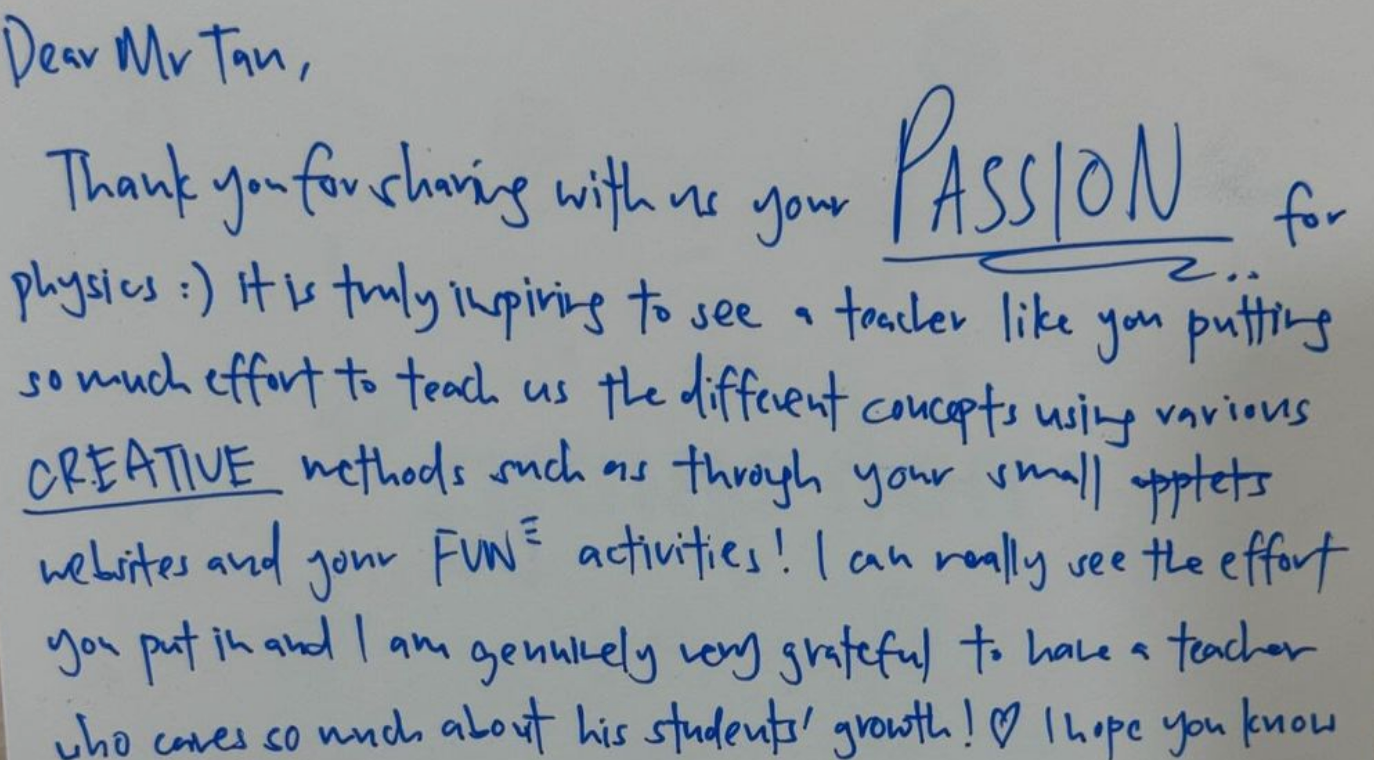 Dear Mr Tan,
Thank you for sharing with us your PASSION for
physics :) it is truly inspiring to see a teacher like you putting
so much effort to teach us the different concepts using various
CREATIVE methods such as through your small applets
websites and your FUN activities! I can really see the effort
you put in and I am genuinely very grateful to have a teacher
who cares so much about his students' growth! ♡ I hope you know